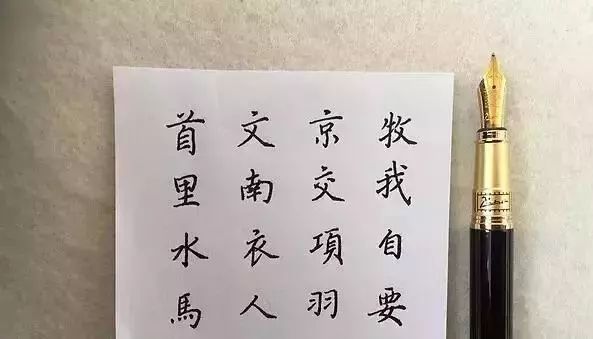 牧我自要
京交項羽
文南衣人
首里水馬